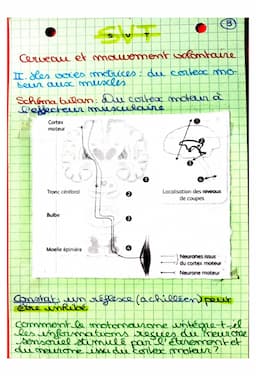 ③
SVT
SVT
Cerveau et mouvement volontaire
II. Les voies motrices : du cortex mo-
teur aux muscles
Schéma bilan : Du cortex moteur à
l'effecteur musculaire
Cortex
moteur
Tronc cérébral
Bulbe
Moelle épinière
Localisation des niveaux
de coupes
Neurones issus
du cortex moteur
Neurone moteur
Constat : un réflexe (achilléen) peut
être inhibé
Comment le motoneurone intègre-t-il
les informations reçues du neurone
sensoriel stimulé par l'étirement et
du neurone issu du cortex moteur ?